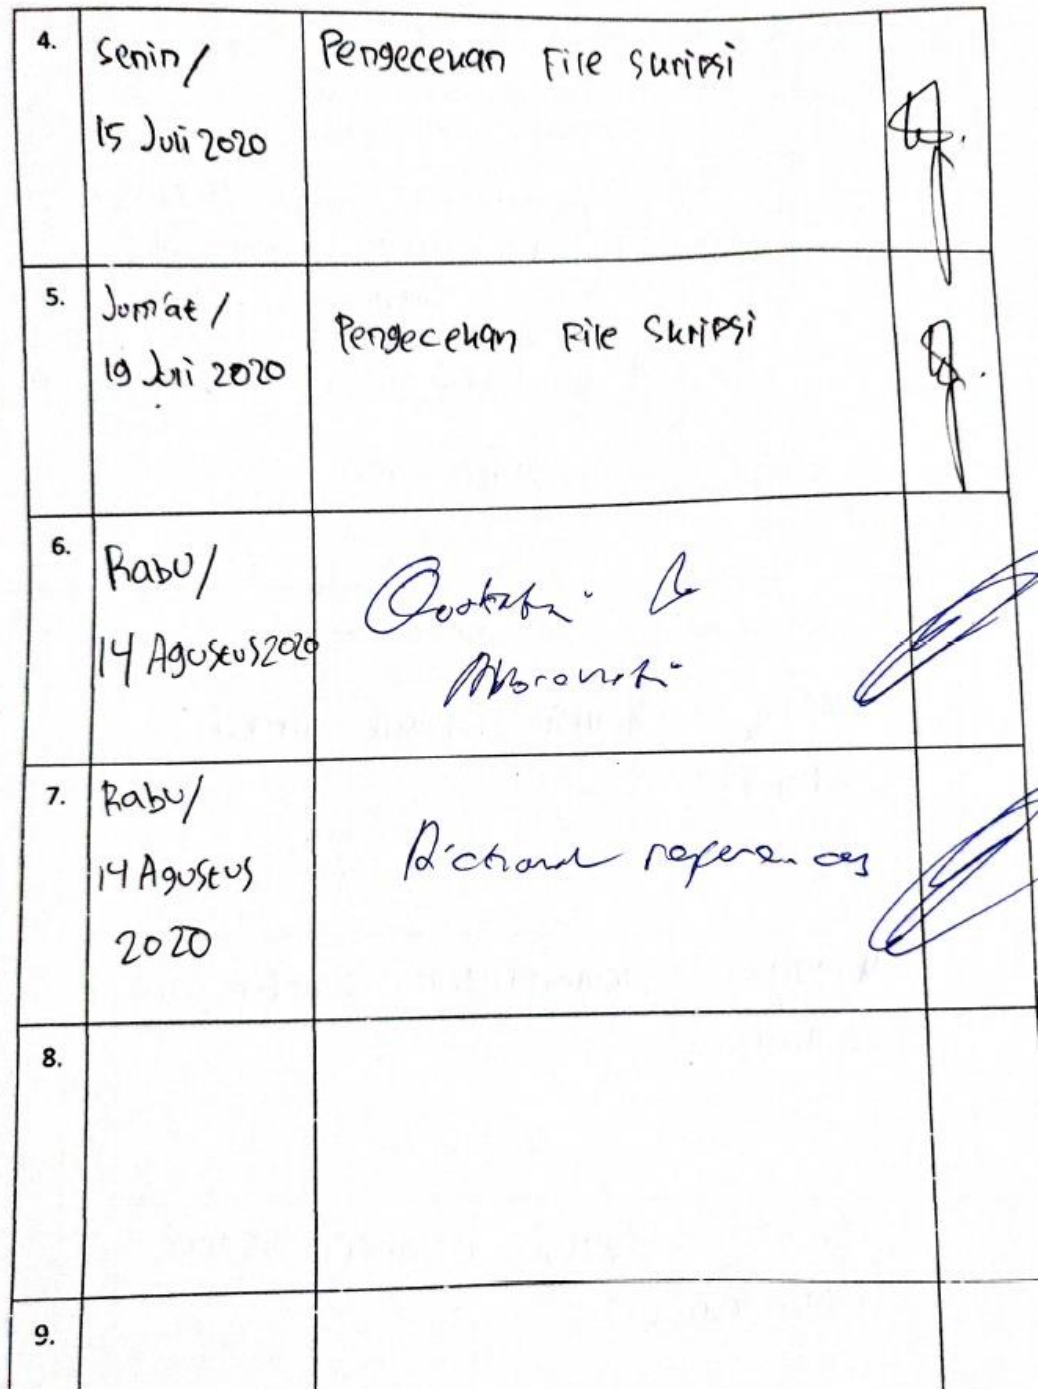 4.
Senin /
15 Juli 2020
Pengecekan File Skripsi
5.
Jum'at /
19 Juli 2020
Pengecekan File Skripsi
6.
Rabu /
14 Agustus 2020
7.
Rabu /
14 Agustus
2020
references
8.
9.